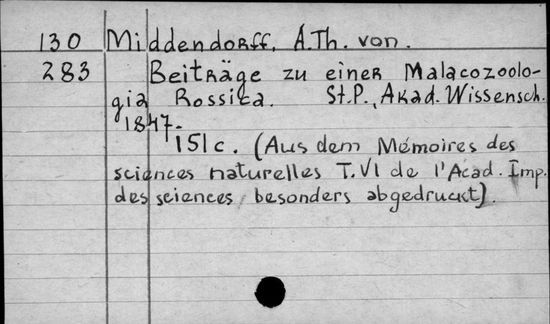 130 Middendorff, A.Th. von.
283 Beiträge zu einer Malacozoolo-
gia Rossica. St.P., Akad. Wissensch.
1847.
151 c. (Aus dem Mémoires des
sciences naturelles T.VI de l'Acad. Imp.
des sciences besonders abgedruckt).